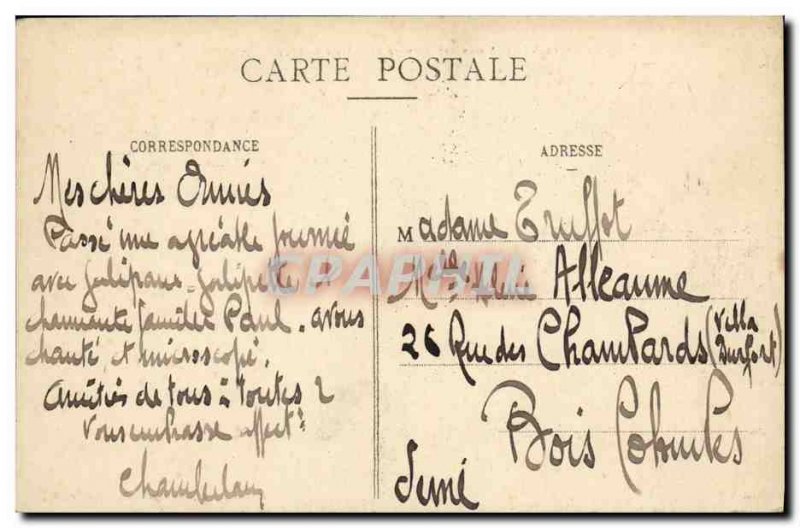 CARTE POSTALE
CORRESPONDANCE
Mes chères Amies
Passé une agréable journée
avec
charmante famille Paul. avons
chanté et microscopé.
Amitiés de tous à toutes 2
Vous embrasse affectt
ADRESSE
Madame Truffot
Melle Alleaume
26 Rue des Champards (Villa
Durfort)
Bois Colombes
Seine
CPARHIL